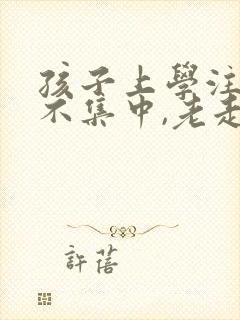 孩子上學注
不集中,老走
許蓓